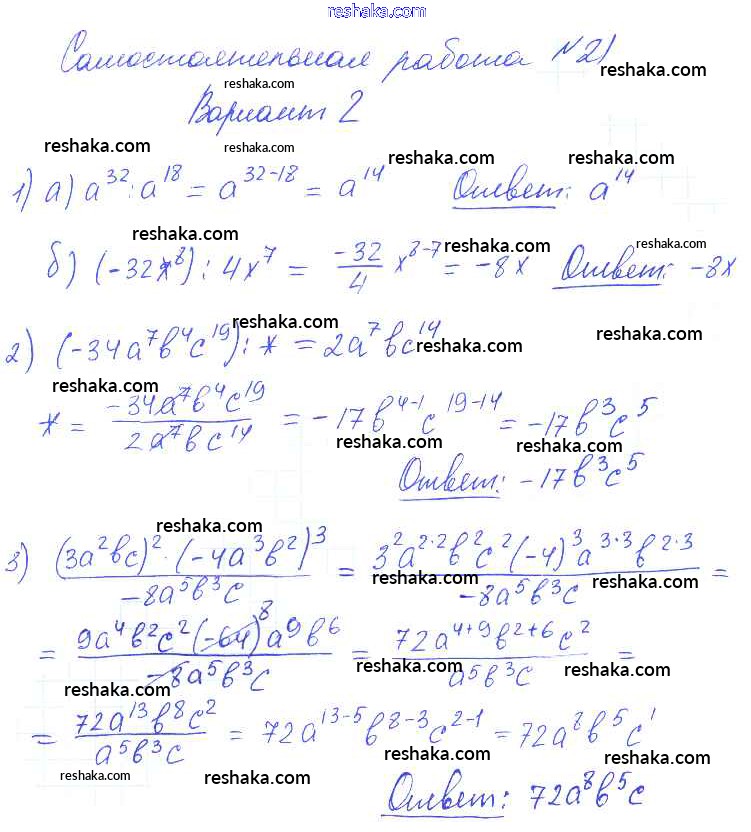 reshaka.com
Самостоятельная работа №21
reshaka.com reshaka.com
Вариант 2
reshaka.com reshaka.com reshaka.com
1) а) a^32 : a^18 = a^(32-18) = a^14 Ответ: a^14
reshaka.com reshaka.com reshaka.com
б) (-32x^8) : 4x^7 = -32/4 x^(8-7) = -8x Ответ: -8x
reshaka.com reshaka.com
2) (-34a^7b^4c^19) : * = 2a^7bc^14
reshaka.com reshaka.com
* = -34a^7b^4c^19 / 2a^7bc^14 = -17b^(4-1)c^(19-14) = -17b^3c^5
reshaka.com reshaka.com
Ответ: -17b^3c^5
reshaka.com reshaka.com
3) (3a^2bc)^2 · (-4a^3b^2)^3 / -8a^5b^3c = 3^2a^(2·2)b^2c^2(-4)^3a^(3·3)b^(2·3) / -8a^5b^3c =
reshaka.com reshaka.com
= 9a^4b^2c^2(-64)^8a^9b^6 / -8a^5b^3c = 72a^(4+9)b^(2+6)c^2 / a^5b^3c =
reshaka.com reshaka.com reshaka.com
= 72a^13b^8c^2 / a^5b^3c = 72a^(13-5)b^(8-3)c^(2-1) = 72a^8b^5c^1
reshaka.com reshaka.com reshaka.com
Ответ: 72a^8b^5c
reshaka.com